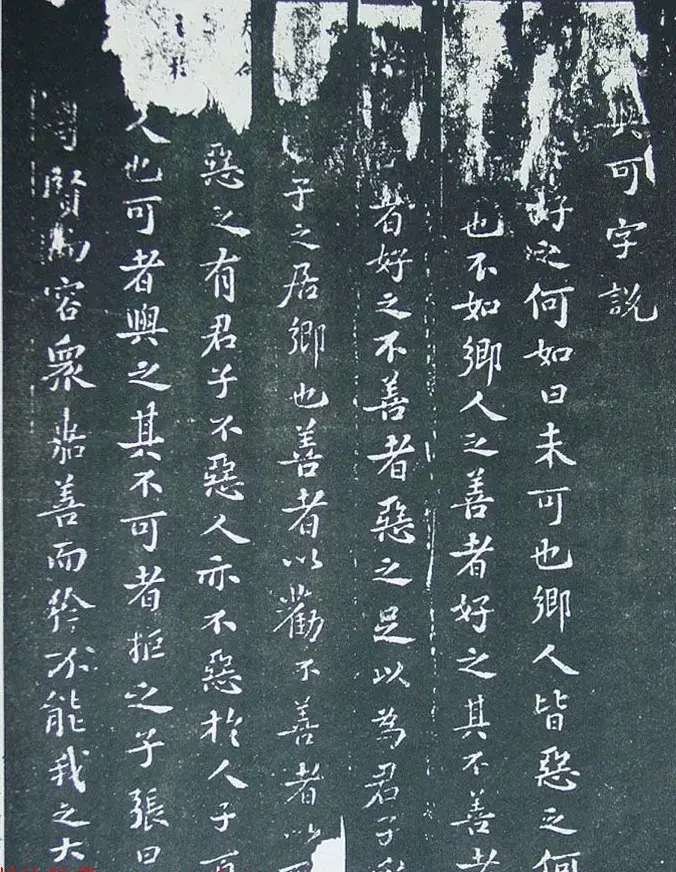 與可字說
好之何如曰未可也鄉人皆惡之何
也不如鄉人之善者好之其不善者
者好之不善者惡之足以為君子
子之居鄉也善者以勸不善者以
惡之有君子不惡人亦不惡於人子夏
人也可者與之其不可者拒之子張曰
尊賢而容眾嘉善而矜不能我之大